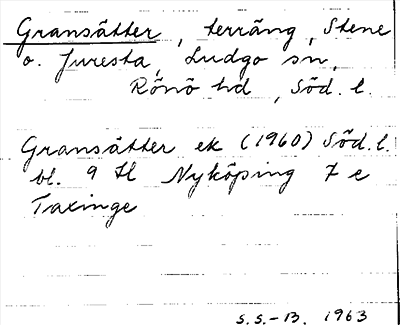 Gransätter, terräng, Stene
o. Juresta, Ludgo sn,
Rönö hd, Söd. l.
Gransätter ek (1960) Söd. l.
bl. 9 H Nyköping 7 e
Taxinge
S.S.-B. 1963